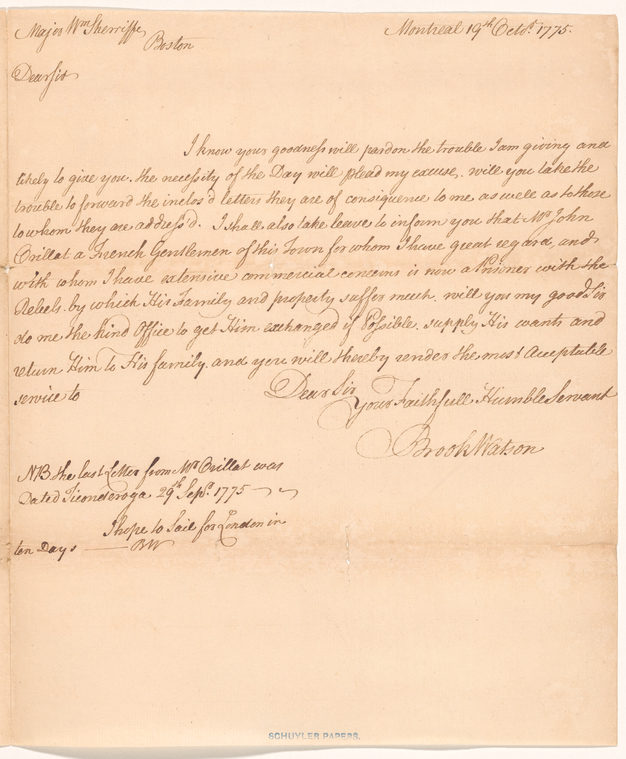 Major Wm Sherriffe
Boston
Montreal 19th Octor. 1775.
Dear Sir
I know your goodness will pardon the trouble I am giving and
likely to give you. the necessity of the Day will plead my excuse. will you take the
trouble to forward the inclos'd letters they are of consiquence to me as well as to those
to whom they are address'd. I shall also take leave to inform you that Mr. John
Orillat a French Gentlemen of this Town for whom I have great regard, and
with whom I have extensive commercial concerns is now a Prisoner with the
Rebels. by which His Family and property suffer much. will you my good Sir
do me the kind Office to get Him exchanged if Possible. supply His wants and
return Him to His family. and you will thereby render the most Acceptable
service to
Dear Sir
your Faithfull Humble Servant
Brook Watson
NB the last Letter from Mr Orillat was
Dated Ticonderoga 29th Sepr. 1775
I hope to Sail for London in
ten Days BW
SCHUYLER PAPERS.